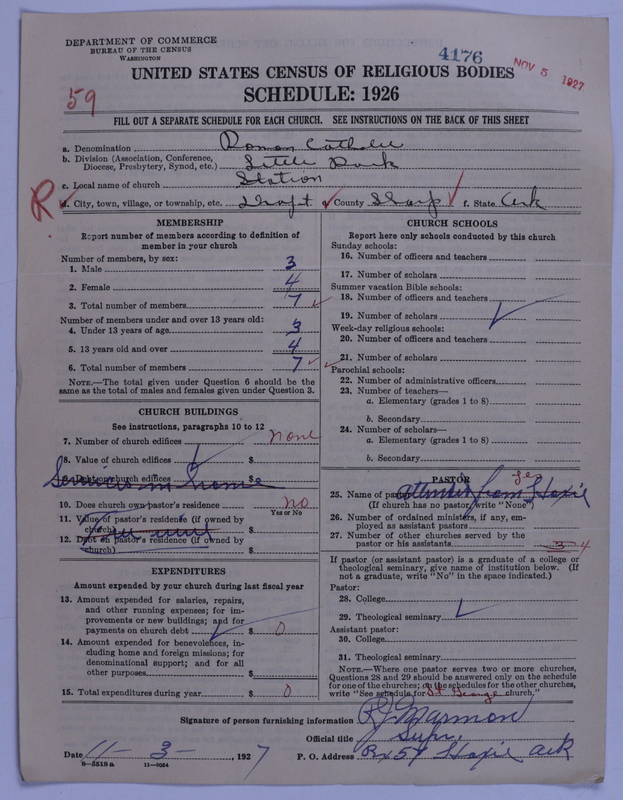 DEPARTMENT OF COMMERCE
BUREAU OF THE CENSUS
WASHINGTON
4176
NOV 5 1927
UNITED STATES CENSUS OF RELIGIOUS BODIES
SCHEDULE: 1926
59
FILL OUT A SEPARATE SCHEDULE FOR EACH CHURCH. SEE INSTRUCTIONS ON THE BACK OF THIS SHEET
a. Denomination Roman Catholic
b. Division (Association, Conference, Diocese, Presbytery, Synod, etc.) Little Rock
c. Local name of church Station
R
d. City, town, village, or township, etc. County Sharp f. State Ark
MEMBERSHIP
Report number of members according to definition of member in your church
Number of members, by sex:
1. Male 3
2. Female 4
3. Total number of members 7
Number of members under and over 13 years old:
4. Under 13 years of age 3
5. 13 years old and over 4
6. Total number of members 7
NOTE.—The total given under Question 6 should be same as the total of males and females given under Question 3.
CHURCH BUILDINGS
See instructions, paragraphs 10 to 12
7. Number of church edifices none
8. Value of church edifices $
9. Debt on church edifices $
Services in home
10. Does church own pastor's residence No
Yes or No
11. Value of pastor's residence (if owned by church) $
12. Debt on pastor's residence (if owned by church) $
EXPENDITURES
Amount expended by your church during last fiscal year
13. Amount expended for salaries, repairs, and other running expenses; for improvements or new buildings; and for payments on church debt $ 0
14. Amount expended for benevolences, including home and foreign missions; for denominational support; and for all other purposes $
15. Total expenditures during year $ 0
CHURCH SCHOOLS
Report here only schools conducted by this church
Sunday schools:
16. Number of officers and teachers
17. Number of scholars
Summer vacation Bible schools:
18. Number of officers and teachers
19. Number of scholars
Week-day religious schools:
20. Number of officers and teachers
21. Number of scholars
Parochial schools:
22. Number of administrative officers
23. Number of teachers—
a. Elementary (grades 1 to 8)
b. Secondary
24. Number of scholars—
a. Elementary (grades 1 to 8)
b. Secondary
PASTOR
25. Name of pastor attended from Hoxie
(If church has no pastor, write "None")
26. Number of ordained ministers, if any, employed as assistant pastors
27. Number of other churches served by the pastor or his assistants 3 4
If pastor (or assistant pastor) is a graduate of a college or theological seminary, give name of institution below. (If not a graduate, write "No" in the space indicated.)
Pastor:
28. College
29. Theological seminary
Assistant pastor:
30. College
31. Theological seminary
NOTE.—Where one pastor serves two or more churches, Questions 28 and 29 should be answered only on the schedule for one of the churches; on the schedules for the other churches, write "See schedule for St George church."
Signature of person furnishing information
Official title Supr.
Date 11-3-, 1927 P. O. Address Bx 57 Hoxie Ark
8—5318 a 11—9054